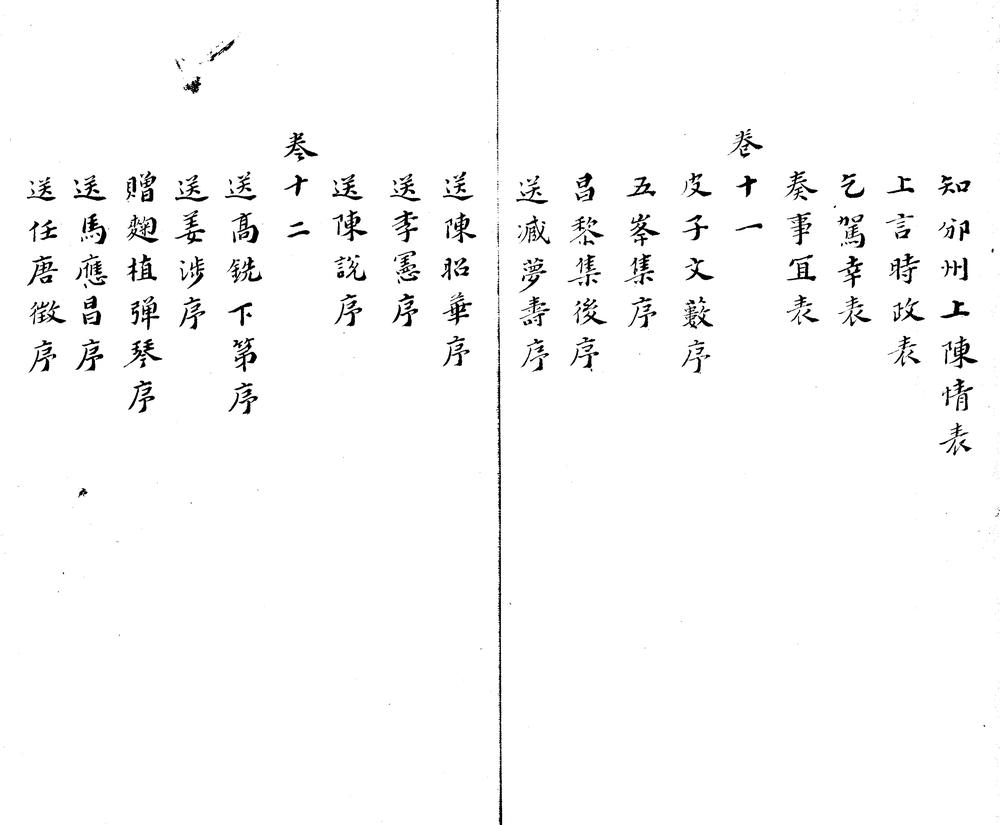 知邠州上陳情表
上言時政表
乞駕幸表
奏事宜表
卷十一
皮子文藪序
五峯集序
昌黎集後序
送臧夢壽序
送陳昭華序
送李憲序
送陳說序
卷十二
送高銑下第序
送姜涉序
贈麴植弹琴序
送馬應昌序
送任唐徵序